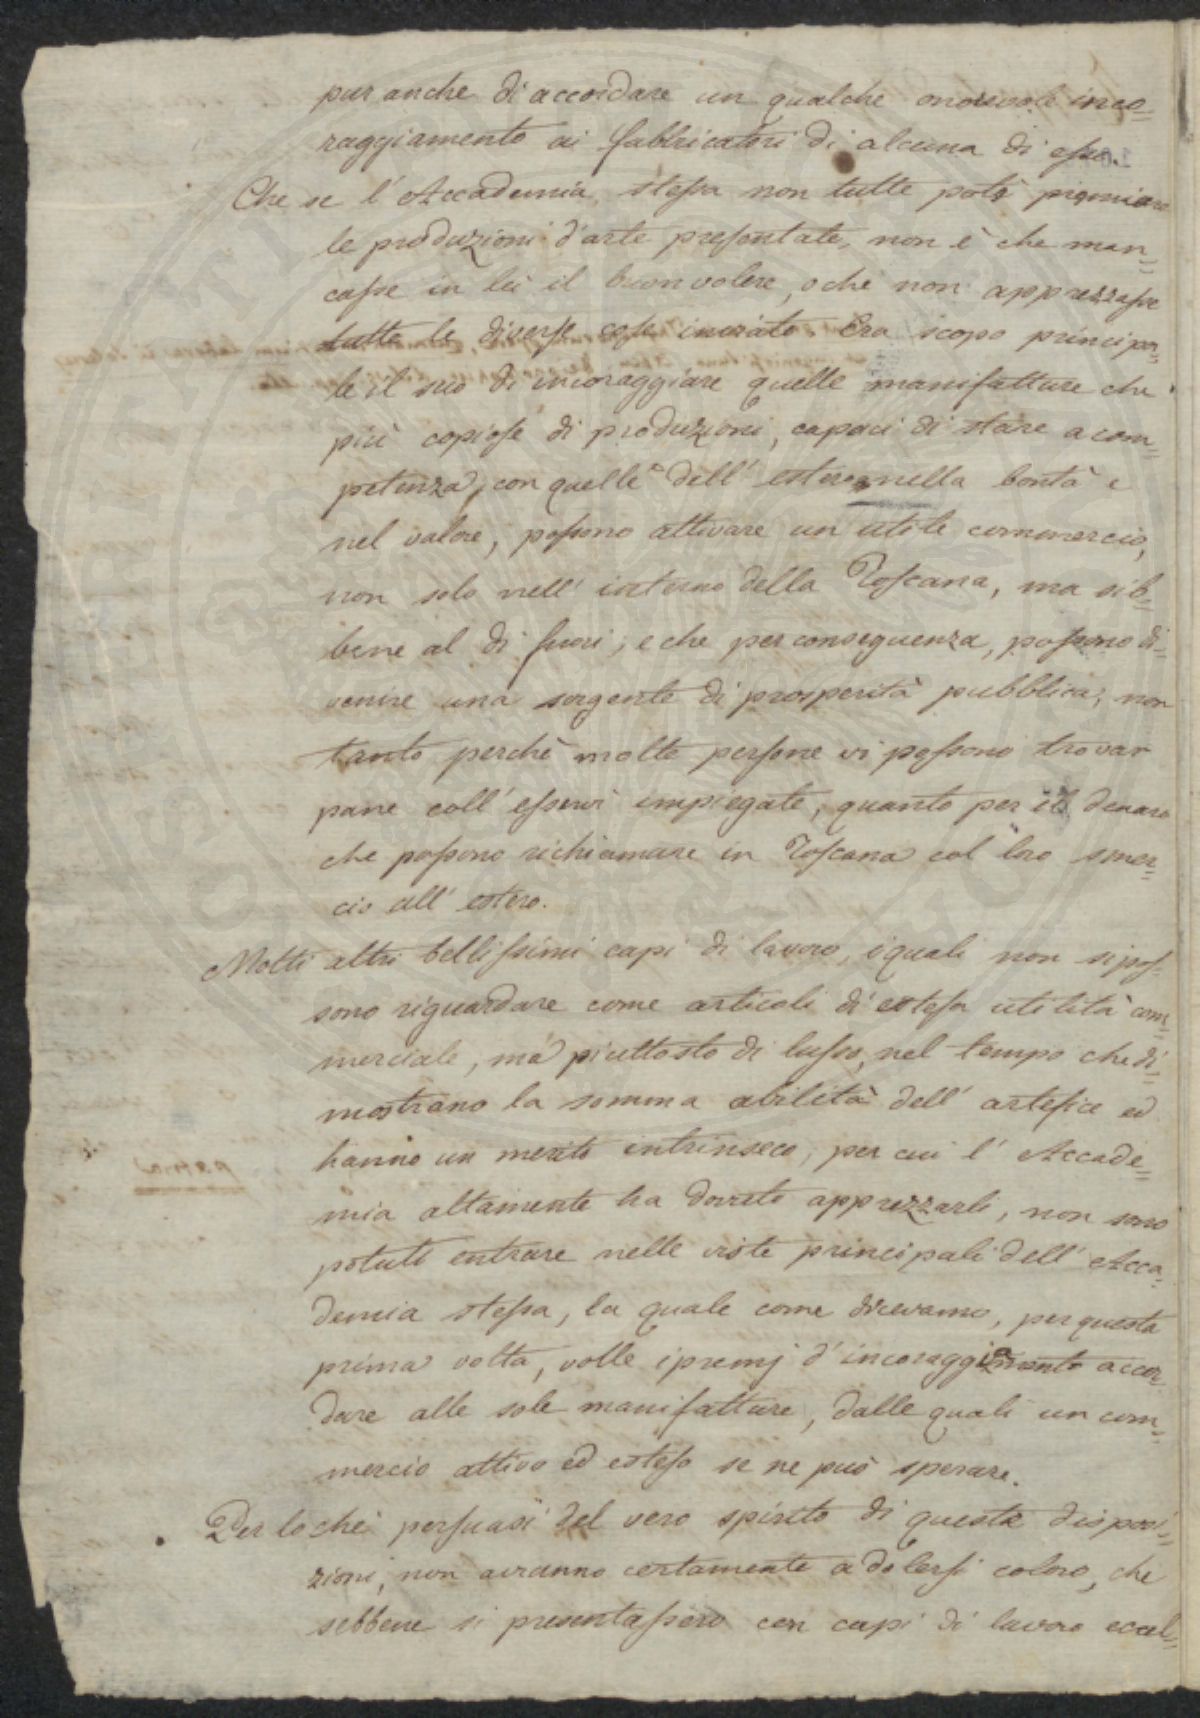 pur anche di accordare un qualche onorevole inco=
raggiamento ai fabbricatori di alcuna di esse.
Che se l'Accademia stessa non tutte potè premiare
le produzioni d'arte presentate, non è che man=
casse in lei il buon volere, o che non apprezzasse
tutte le diverse cose inviate. Era scopo principa=
le il suo di incoraggiare quelle manifatture che
più copiose di produzioni, capaci di stare a com=
petenza, con quelle dell'estero nella bontà e
nel valore, possono attivare un utile commercio,
non solo nell'interno della Toscana, ma sib=
bene al di fuori; e che per conseguenza, possono di=
venire una sorgente di prosperità pubblica; non
tanto perchè molte persone vi possono trovar
pane coll'esservi impiegate, quanto per il denaro
che possono richiamare in Toscana col loro smer=
cio all'estero.
Molti altri bellissimi capi di lavoro, i quali non si pos=
sono riguardare come articoli di estesa utilità com=
merciale, ma piuttosto di lusso, nel tempo che di=
mostrano la somma abilità dell'artefice ed
hanno un merito intrinseco, per cui l'Accade=
mia altamente ha dovuto apprezzarli, non sono
potuti entrare nelle viste principali dell'Acca=
demia stessa, la quale come dicevamo, per questa
prima volta, volle i premj d'incoraggiamento accor=
dare alle sole manifatture, dalle quali un com=
mercio attivo ed esteso se ne può sperare.
Per lo chè persuasi del vero spirito di queste disposi=
zioni, non avranno certamente a dolersi coloro, che
sebbene si presentassero con capi di lavoro eccel=